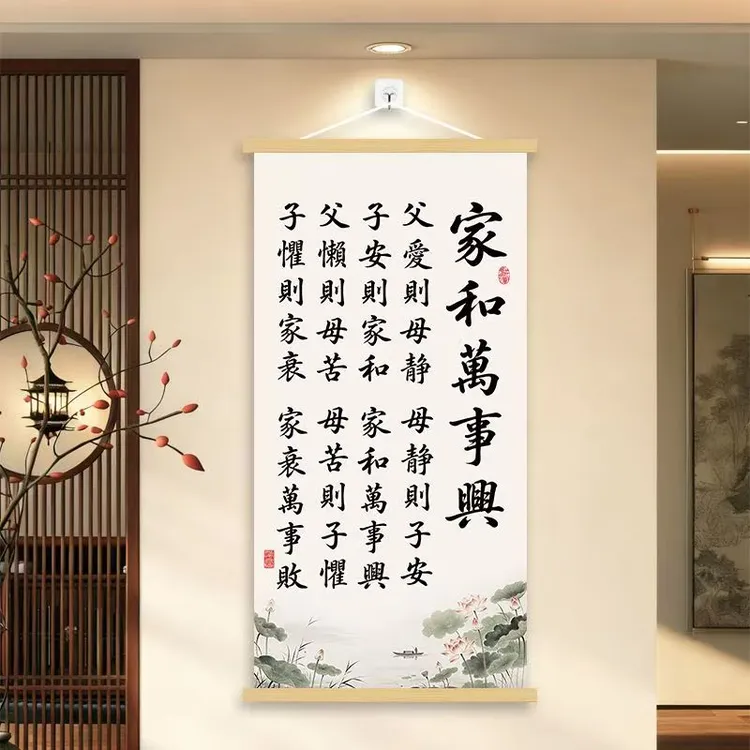 家和萬事興
父愛則母静 母静則子安
子安則家和 家和萬事興
父懶則母苦 母苦則子懼
子懼則家衰 家衰萬事敗